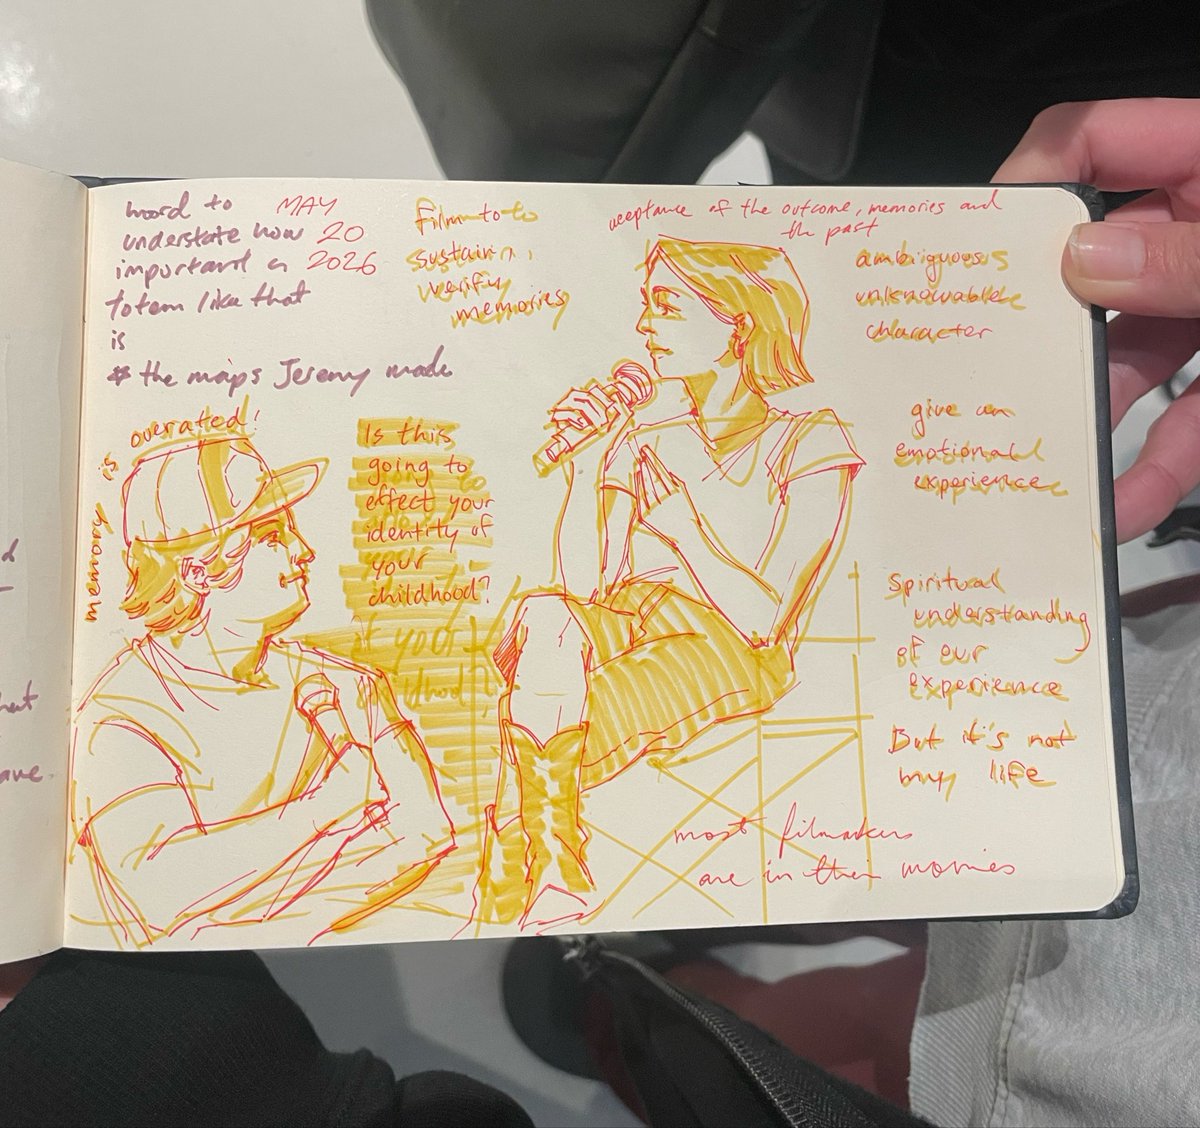 hord to
understate how
important a
totem like that
is
* the maps Jeremy made
MAY
20
2026
film to to
sustain,
verify
memories
acceptance of the outcome, memories and
the past
ambiguous
unknowable
character
memory is overated!
Is this
going to
effect your
identity of
your
childhood?
of your
give an
emotional
experience
Spiritual
understanding
of our
experience
But it's not
my life
most filmakers
are in their movies